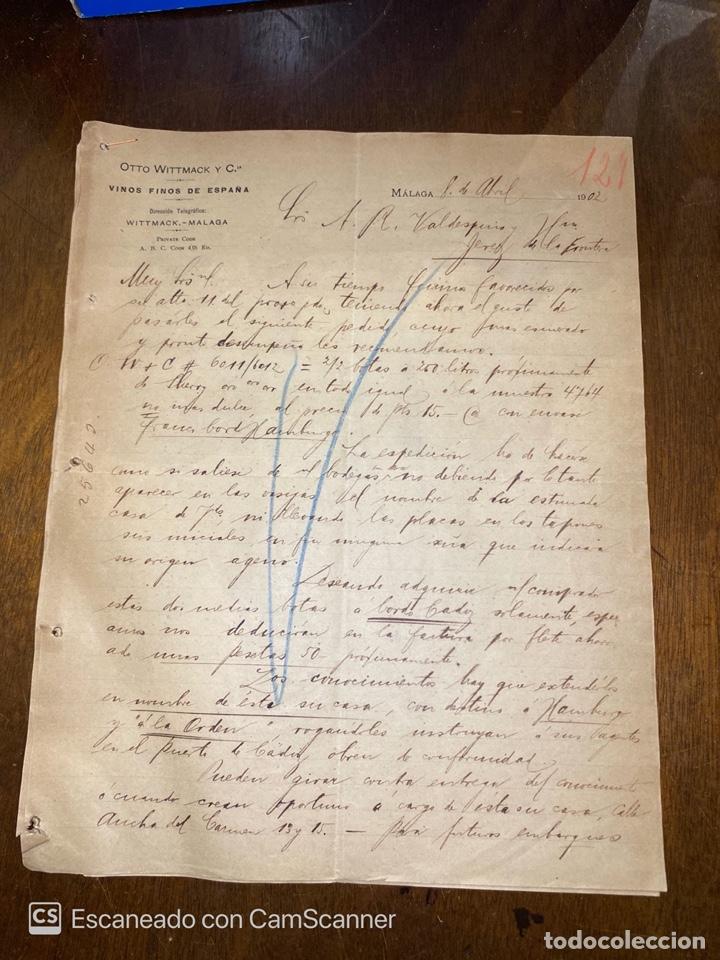 OTTO WITTMACK Y C.ª
VINOS FINOS DE ESPAÑA
Dirección Telegráfica:
WITTMACK.-MALAGA
PRIVATE CODE
A. B. C. CODE 4th ED.
121
MÁLAGA 8. de Abril 1902
Srs A. R. Valdespino y Hno
Jerez de la Frontera
Muy Srs A su tiempo fuimos favorecidos por
su atta 11 del teniendo ahora el gusto de
pasarles el siguiente pedido cuyo mas esmerado
y pronto desempeño les recomendamos.
W + C # 6011/6012 = 2/2 botas á 250 litros próximamente
de Sherry oro en todo igual á la muestra 4764
no mas dulce, al precio de pts 15.- @ con envase
franco bordo Hamburgo.
La expedición ha de hacerse
como si saliese de bodegas no debiendo por lo tanto
aparecer en las vasijas el nombre de la estimada
casa de Vds, ni llevando las placas en los tapones
sus iniciales en fin ninguna seña que indicara
su origen ageno.
25940
Deseando adquirir el comprador
estas dos medias botas a bordo Cadiz solamente, esper
amos nos deducirán en la factura por flete ahorr
ado unas pesetas 50- próximamente.
Los conocimientos hay que extenderlos
en nombre de ésta su casa, con destino á Hamburgo
y "á la Orden" rogándoles instruyan á sus agentes
en el Puerto de Cádiz obren de conformidad.
Pueden girar contra entrega del conocimiento
ó cuando crean oportuno á cargo de esta su casa, Calle
Ancha del Carmen 13 y 15. - Para futuros embarques
CS Escaneado con CamScanner
todocoleccion